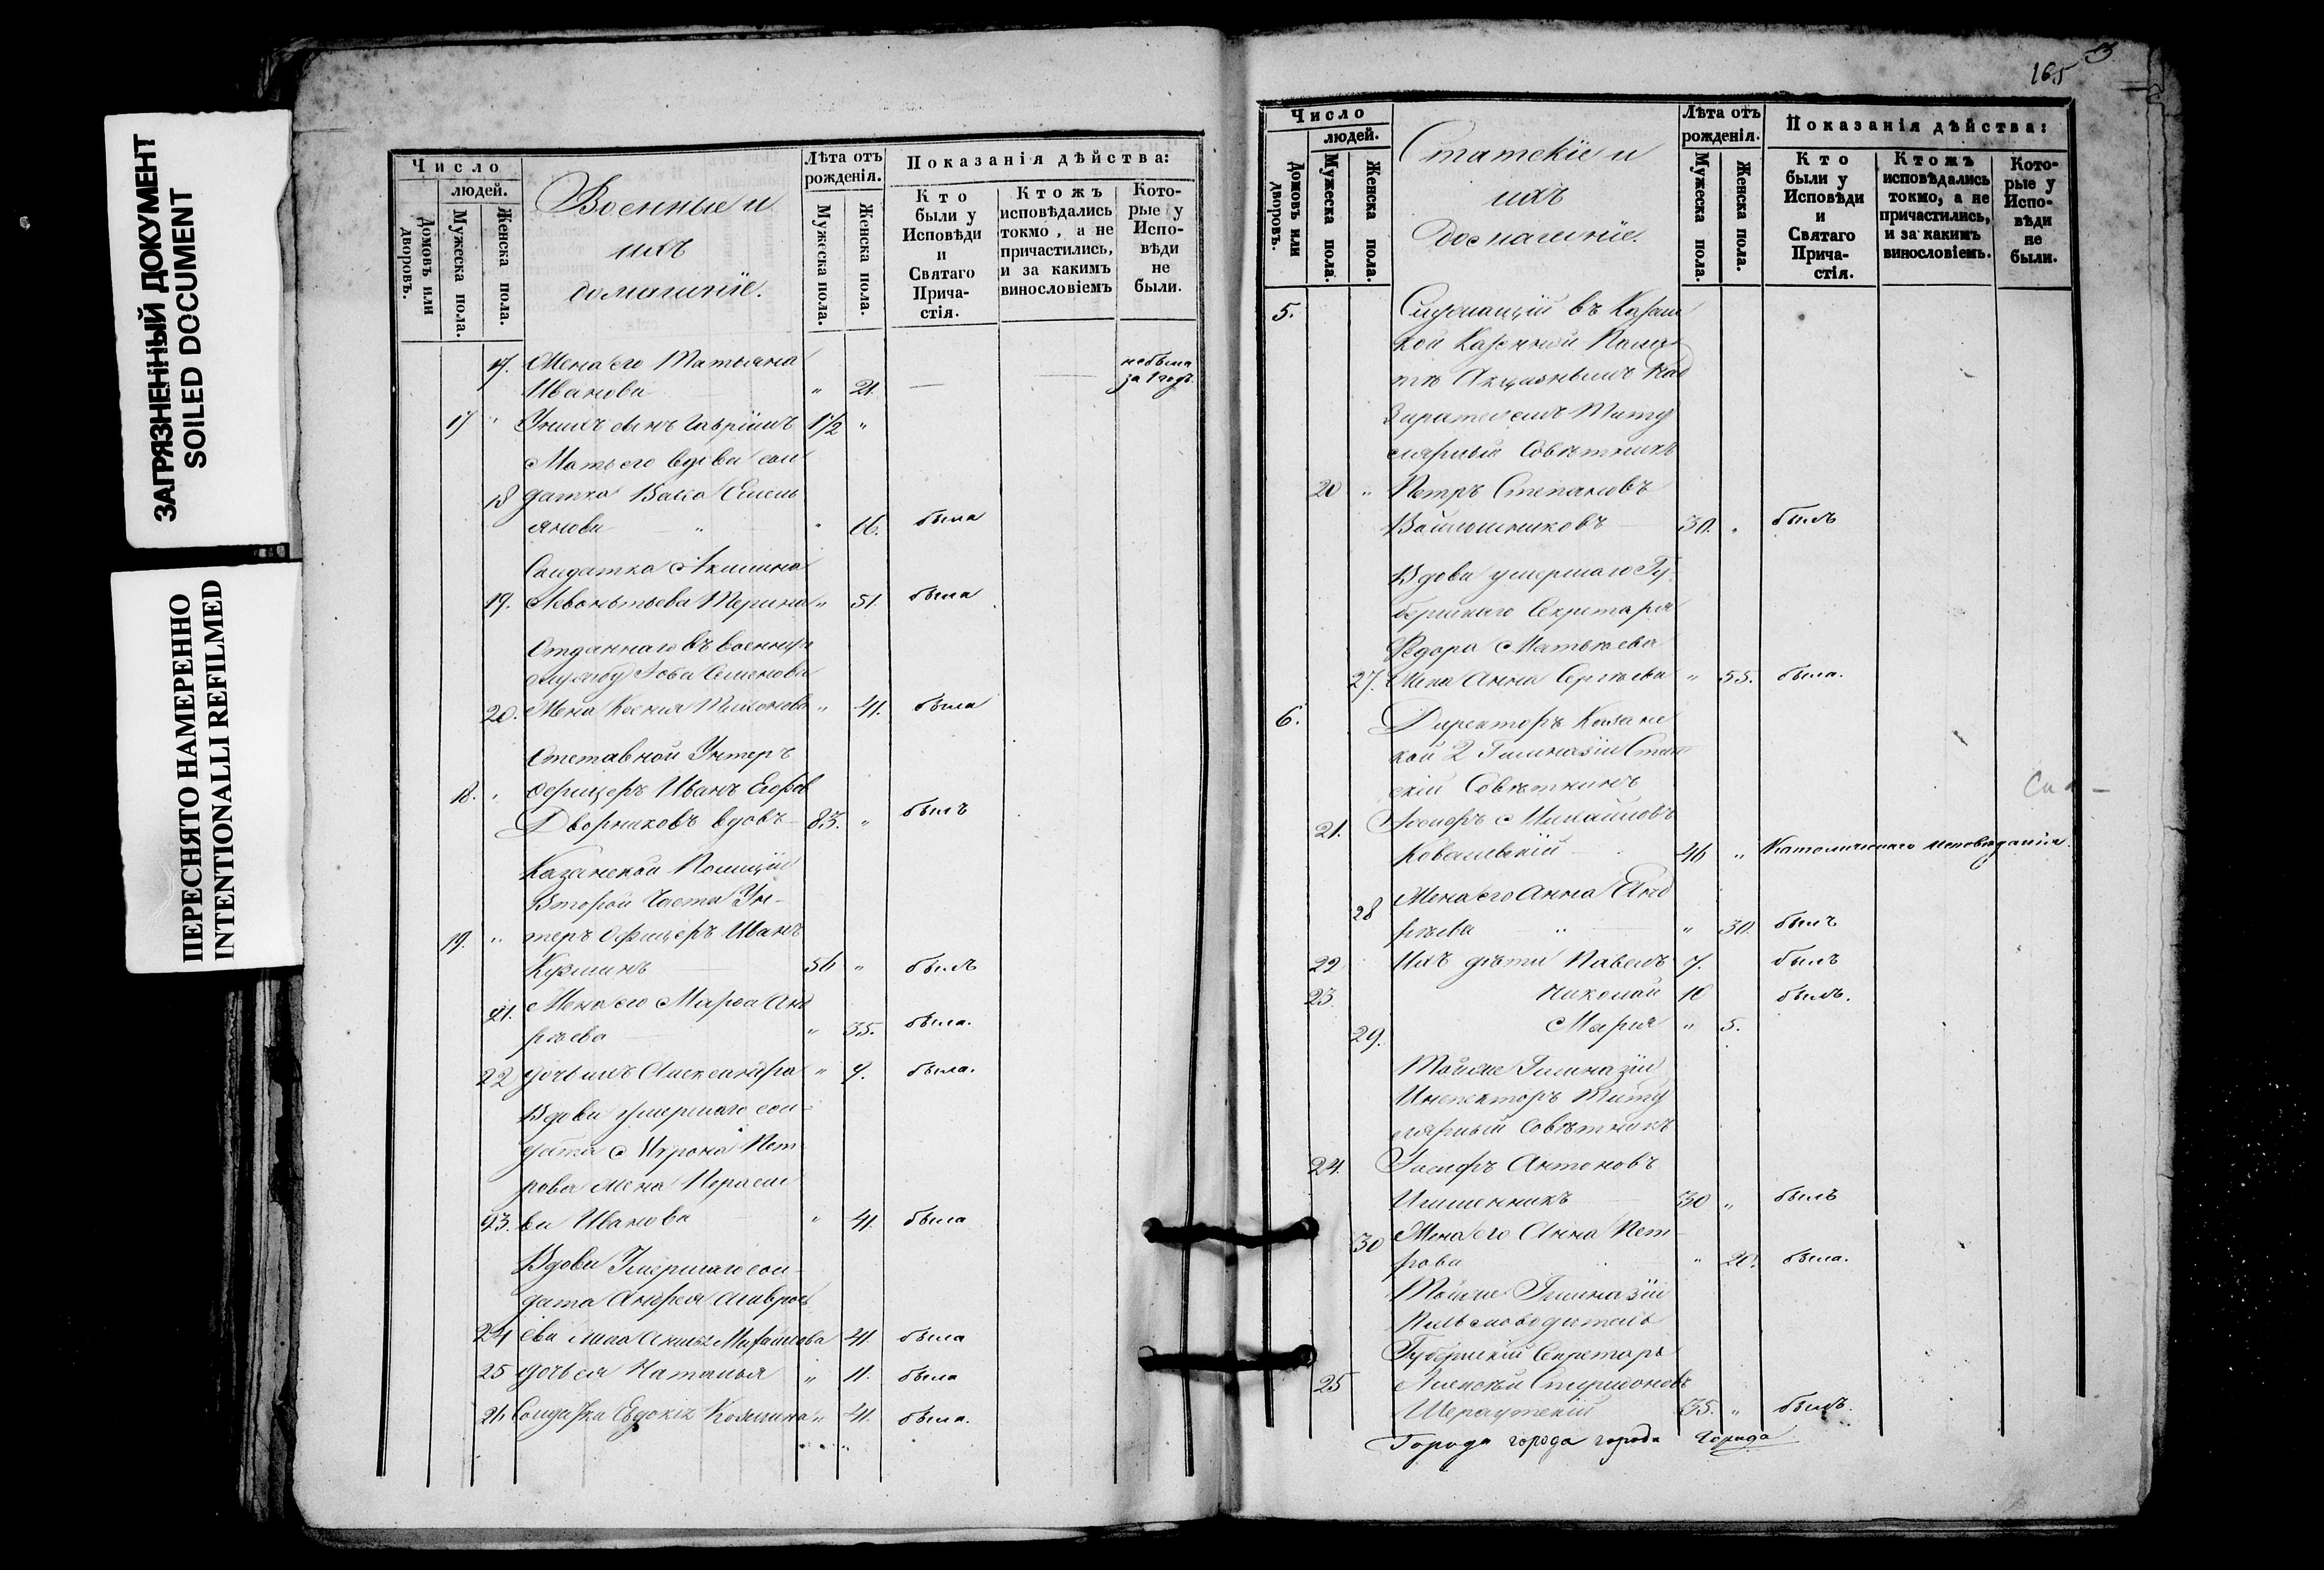 ЗАГРЯЗНЕННЫЙ ДОКУМЕНТ
SOILED DOCUMENT
ПЕРЕСНЯТО НАМЕРЕННО
INTENTIONALLI REFILMED
Число
людей.
Домовъ или дворовъ.
Мужеска пола.
Женска пола.
Военные и
ихъ
домашнїе.
Лѣта отъ рожденія.
Мужеска пола.
Женска пола.
Показанія дѣйства:
Кто были у Исповѣди и Святаго Причастія.
Ктожъ исповѣдались токмо, а не причастились, и за какимъ винословіемъ
Которые у Исповѣди не были.
17. Жена его Татьяна
Иванова " 21. — — не была за 1 годъ.
17 " У нихъ сынъ Гаврїилъ 1/2 "
Мать его вдова сол
18 датка Васса Емель
янова " " 66. была
Солдатка Акилина
19. Левонтьева " 51. была
Отданнаго въ военную
службу Іова Семенова
20. Жена Ксенія " 41. была
Отставной Унтеръ
18. " офицеръ Иванъ Егоровъ
Дворниковъ вдовъ 83. " былъ
Казанской Полицїи
Второй Части Ун-
19. " теръ Офицеръ Иванъ
Кузминъ 56 " былъ
21. Жена его Марѳа Анд
рѣева " 35. была.
22 дочь ихъ Александра " 9. была.
Вдова умершаго сол-
дата Мирона Пет
рова жена Параске
23. ва Иванова " 41. была
Вдова Умершаго сол-
дата Андрея
24 ева жена 41 была
25 дочь ея Наталья " 11. была
26 Солдатка Евдокія " 41. была.
165
Число
людей.
Домовъ или дворовъ.
Мужеска пола.
Женска пола.
Статскїе и
ихъ
домашнїе.
Лѣта отъ рожденія.
Мужеска пола.
Женска пола.
Показанія дѣйства:
Кто были у Исповѣди и Святаго Причастія.
Ктожъ исповѣдались токмо, а не причастились, и за какимъ винословіемъ.
Которые у Исповѣди не были.
5. Служащїй въ Казан
кой Казенной Пала
тѣ Акцизнымъ Над
зирателемъ Титу
лярный Совѣтникъ
20 " Петръ Степановъ
Войлошниковъ 30. " былъ
Вдова умершаго Гу-
бернскаго Секретаря
Ѳедора Матвѣева
27. Жена Анна Сергѣева " 55. была.
6. Директоръ Казанс
кой 2 Гимназїи Стат
скїй Совѣтникъ
21. Іосифъ Михайловъ
Ковальскїй 46 " Католическаго исповѣданія.
28 Жена его Анна Анд
рѣева " " 30. былъ
22 Ихъ дѣти Павелъ 7. былъ
23 Николай 10 былъ.
29. Марія " 5.
Тойже Гимназїи
Инспекторъ Титу
лярный Совѣтникъ
24. Іосифъ Антоновъ
30 " былъ
30 Жена его Анна Пет
рова " 20. была.
Тойже Гимназїи
Письмоводитель
Губернскїй Секретарь
25 Алексѣй Спиридоновъ
35. " былъ.
Города города города города